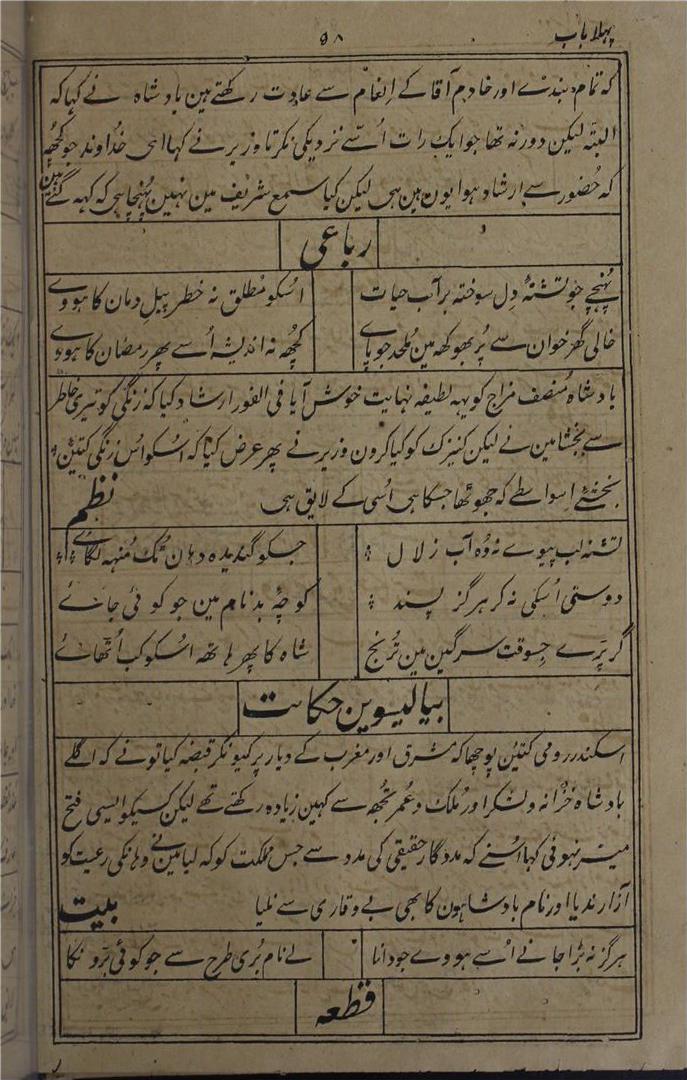 پہلا باب
۵۸
کہ تمام بندے اور خادم آقا کے انعام سے عادت رکھتے ہین بادشاہ نے کہا کہ
البتہ لیکن دور نہ تھا جو ایک رات اُسّے نزدیکی نکرتا وزیر نے کہا ای خداوند جو کچھ
کہ حُضور سے ارشاد ہوا یون ہین ہی لیکن کیا سمع شریف مین نہین پہنچا ہی کہ کہہ گئے ہین
رباعی
پُہنچے جو تشنۂ دِل سوختہ بر آب حیات اُسکو مُطلق نہ خطر پیلِ دمان کا ہووے
خالی گھر خوان سے پُر بھوکھہ مین مُلحد جو پاے کچُھہ نہ اندیشہ اُسے پھر رمضان کا ہووے
بادشاہ مُنصف مزاج کو یہہ لطیفہ نہایت خوش آیا فی الفور ارشاد کیا کہ زنگی کو تیری خاطر
سے بخشا مین نے لیکن کنیزک کو کیا کرون وزیر نے پھر عرض کیا کہ اُسکو اُس زنگی کتیٔن
بخشئے اِسواسطے کہ جھوٹھا جسکا ہی اُسی کے لایق ہی
نظم
تشنہ لب پیوے نہ وُہ آب زلال جسکو گندیدہ دہان ٹک مُنہہ لگاے
دوستی اُسکی نہ کر ہرگز پسند کوچۂ بدنام مین جو کوئی جائے
گر پڑے جسوقت سرگین مین تُرنج شاہ کا پھر ہاتھہ اُسکو کب اُٹھائے
بیالیسوین حکایت
اسکندر رومی کتیٔن پوچھا کہ مشرق اور مغرب کے دیار پر کیونکر قبضہ کیا تونے کہ اگلے
بادشاہ خزانہ و لشکر اور مُلک و عُمر تجُھہ سے کہین زیادہ رکھتے تھے لیکن کسیکو ایسی فتح
میسّر نہوئی کہا اُسنے کہ مددگار حقیقی کی مدد سے جس مملکت کو کہ لیا مین نے وہانکی رعیت کو
آزار ندیا اور نام بادشاہون کا بھی بے وقاری سے نلیا
بیت
ہرگز نہ بڑا جانے اُسے ہووے جو دانا لے نام بُری طرح سے جو کوئی بڑونکا
قطعہ